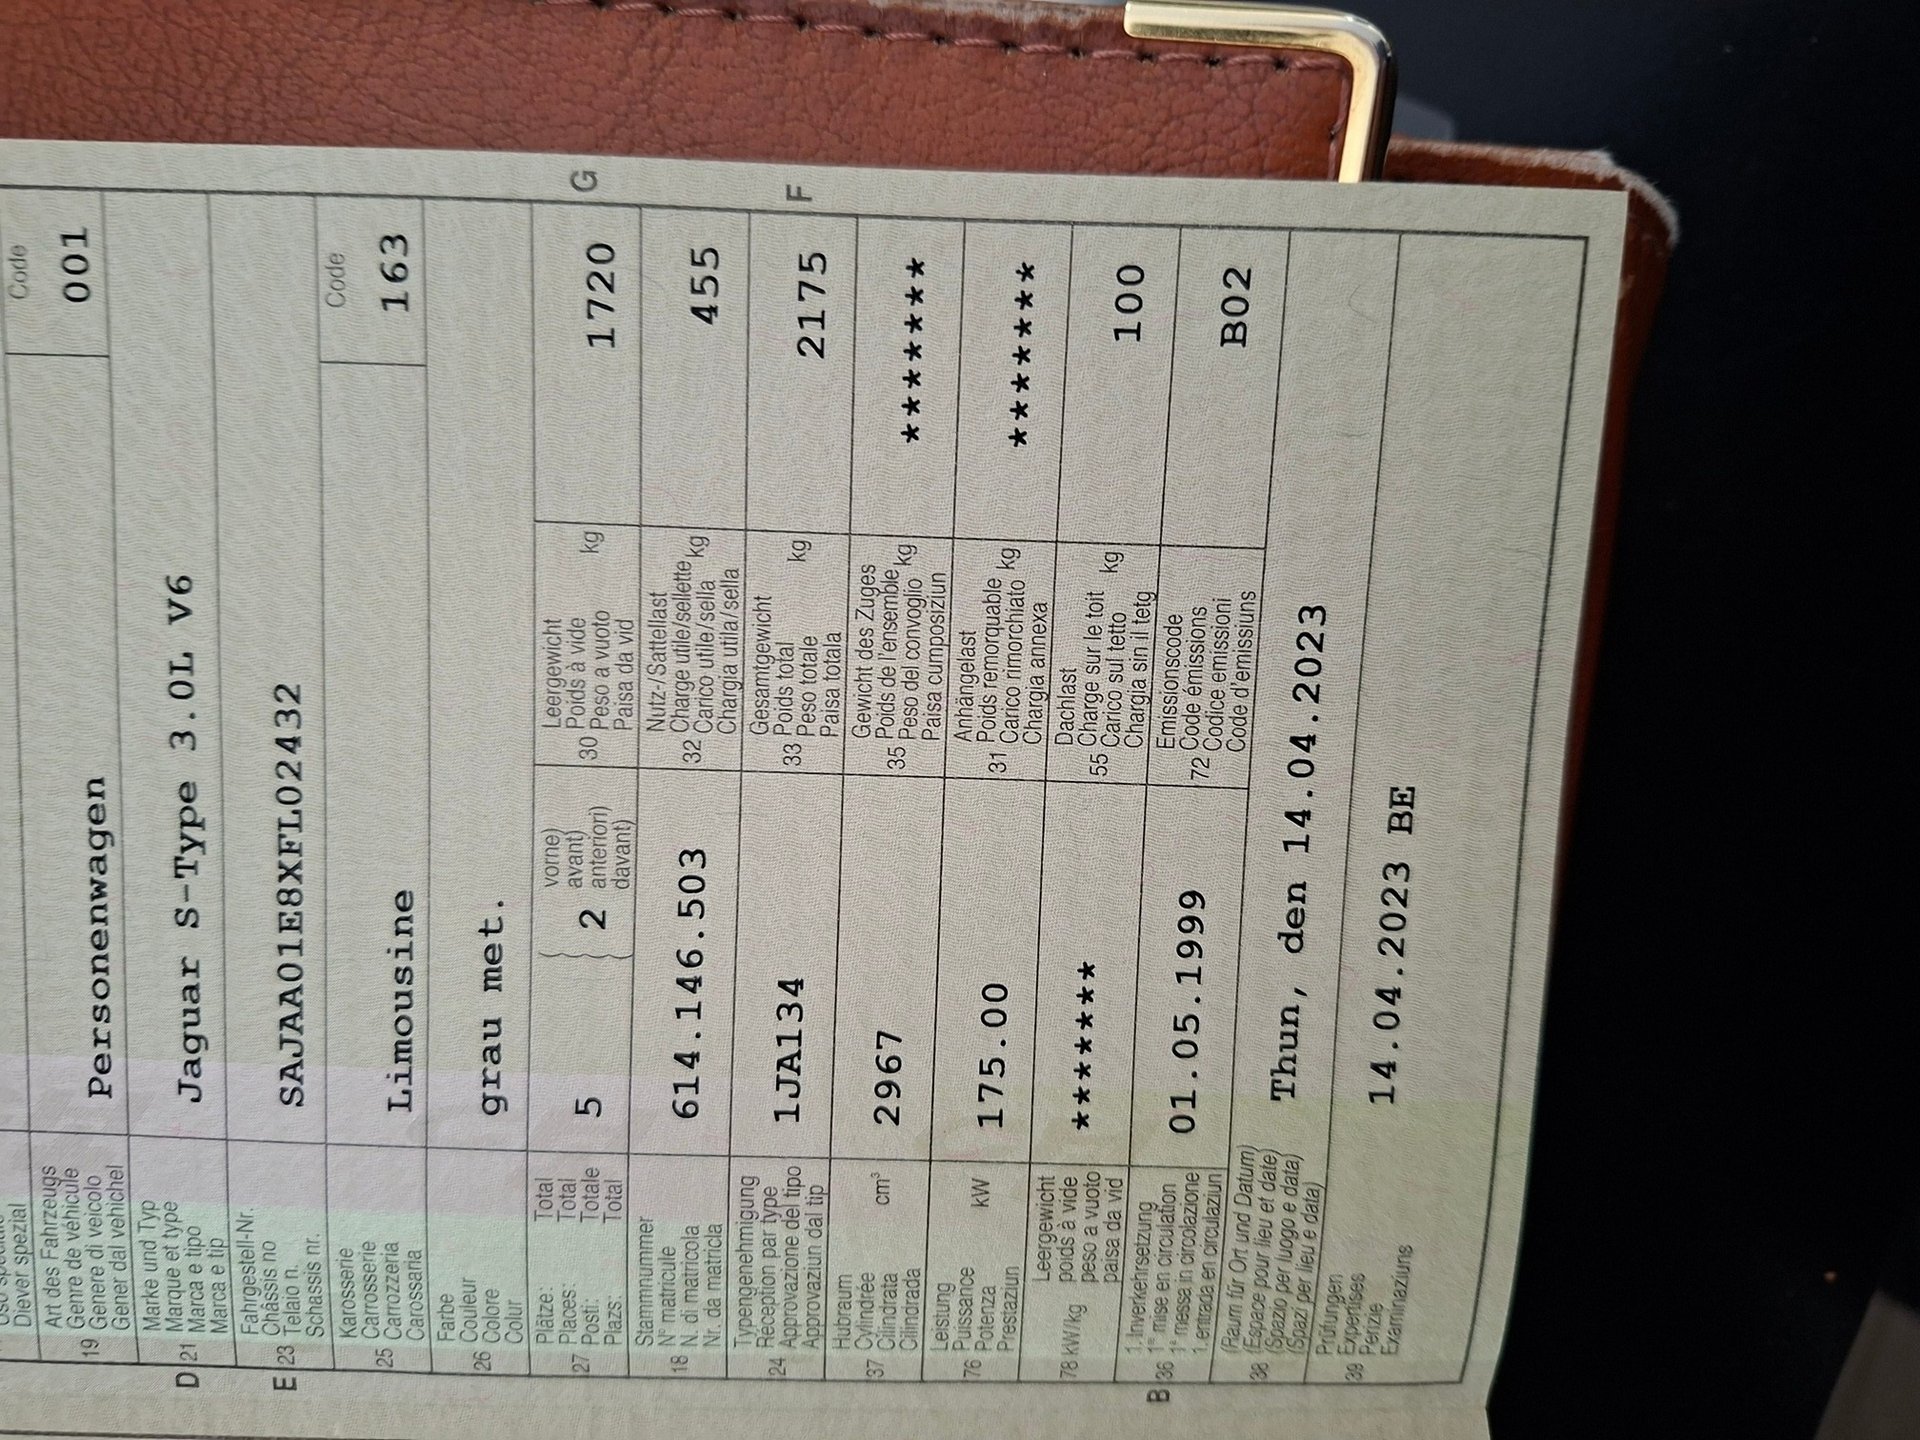 Diever spezial
Art des Fahrzeugs
Genre de véhicule
19 Genere di veicolo
Gener dal vehichel
Personenwagen
Code
001
Marke und Typ
Marque et type
D 21 Marca e tipo
Marca e tip
Jaguar S-Type 3.0L V6
Fahrgestell-Nr.
Châssis no
E 23 Telaio n.
Schassis nr.
SAJAA01E8XFL02432
Karosserie
Carrosserie
25 Carrozzeria
Carossaria
Limousine
Code
163
Farbe
Couleur
26 Colore
Colur
grau met.
Plätze: Total
Places: Total
27 Posti: Totale
Plazs: Total
5
2
vorne)
avant)
anteriori)
davant)
Leergewicht
Poids à vide
30 Peso a vuoto kg
Paisa da vid
1720
G
Stammnummer
N° matricule
18 N. di matricola
Nr. da matricla
614.146.503
Nutz-/Sattellast
Charge utile/sellette kg
32 Carico utile/sella
Chargia utila/sella
455
Typengenehmigung
Réception par type
24 Approvazione del tipo
Approvaziun dal tip
1JA134
Gesamtgewicht
Poids total
33 Peso totale kg
Paisa totala
2175
F
Hubraum
Cylindrée
37 Cilindrata cm³
Cilindrada
2967
Gewicht des Zuges
Poids de l'ensemble
35 Peso del convoglio kg
Paisa cumposiziun
*******
Leistung
Puissance
76 Potenza kW
Prestaziun
175.00
Anhängelast
Poids remorquable
31 Carico rimorchiato kg
Chargia annexa
*******
Leergewicht
78 kW/kg poids à vide
peso a vuoto
paisa da vid
*******
Dachlast
Charge sur le toit
55 Carico sul tetto kg
Chargia sin il tetg
100
1. Inverkehrsetzung
B 36 1re mise en circulation
1a messa in circolazione
1. entrada en circulaziun
01.05.1999
Emissionscode
72 Code émissions
Codice emissioni
Code d'emissiuns
B02
(Raum für Ort und Datum)
38 (Espace pour lieu et date)
(Spazio per luogo e data)
(Spazi per lieu e data)
Thun, den 14.04.2023
Prüfungen
39 Expertises
Perizie
Examinaziuns
14.04.2023 BE